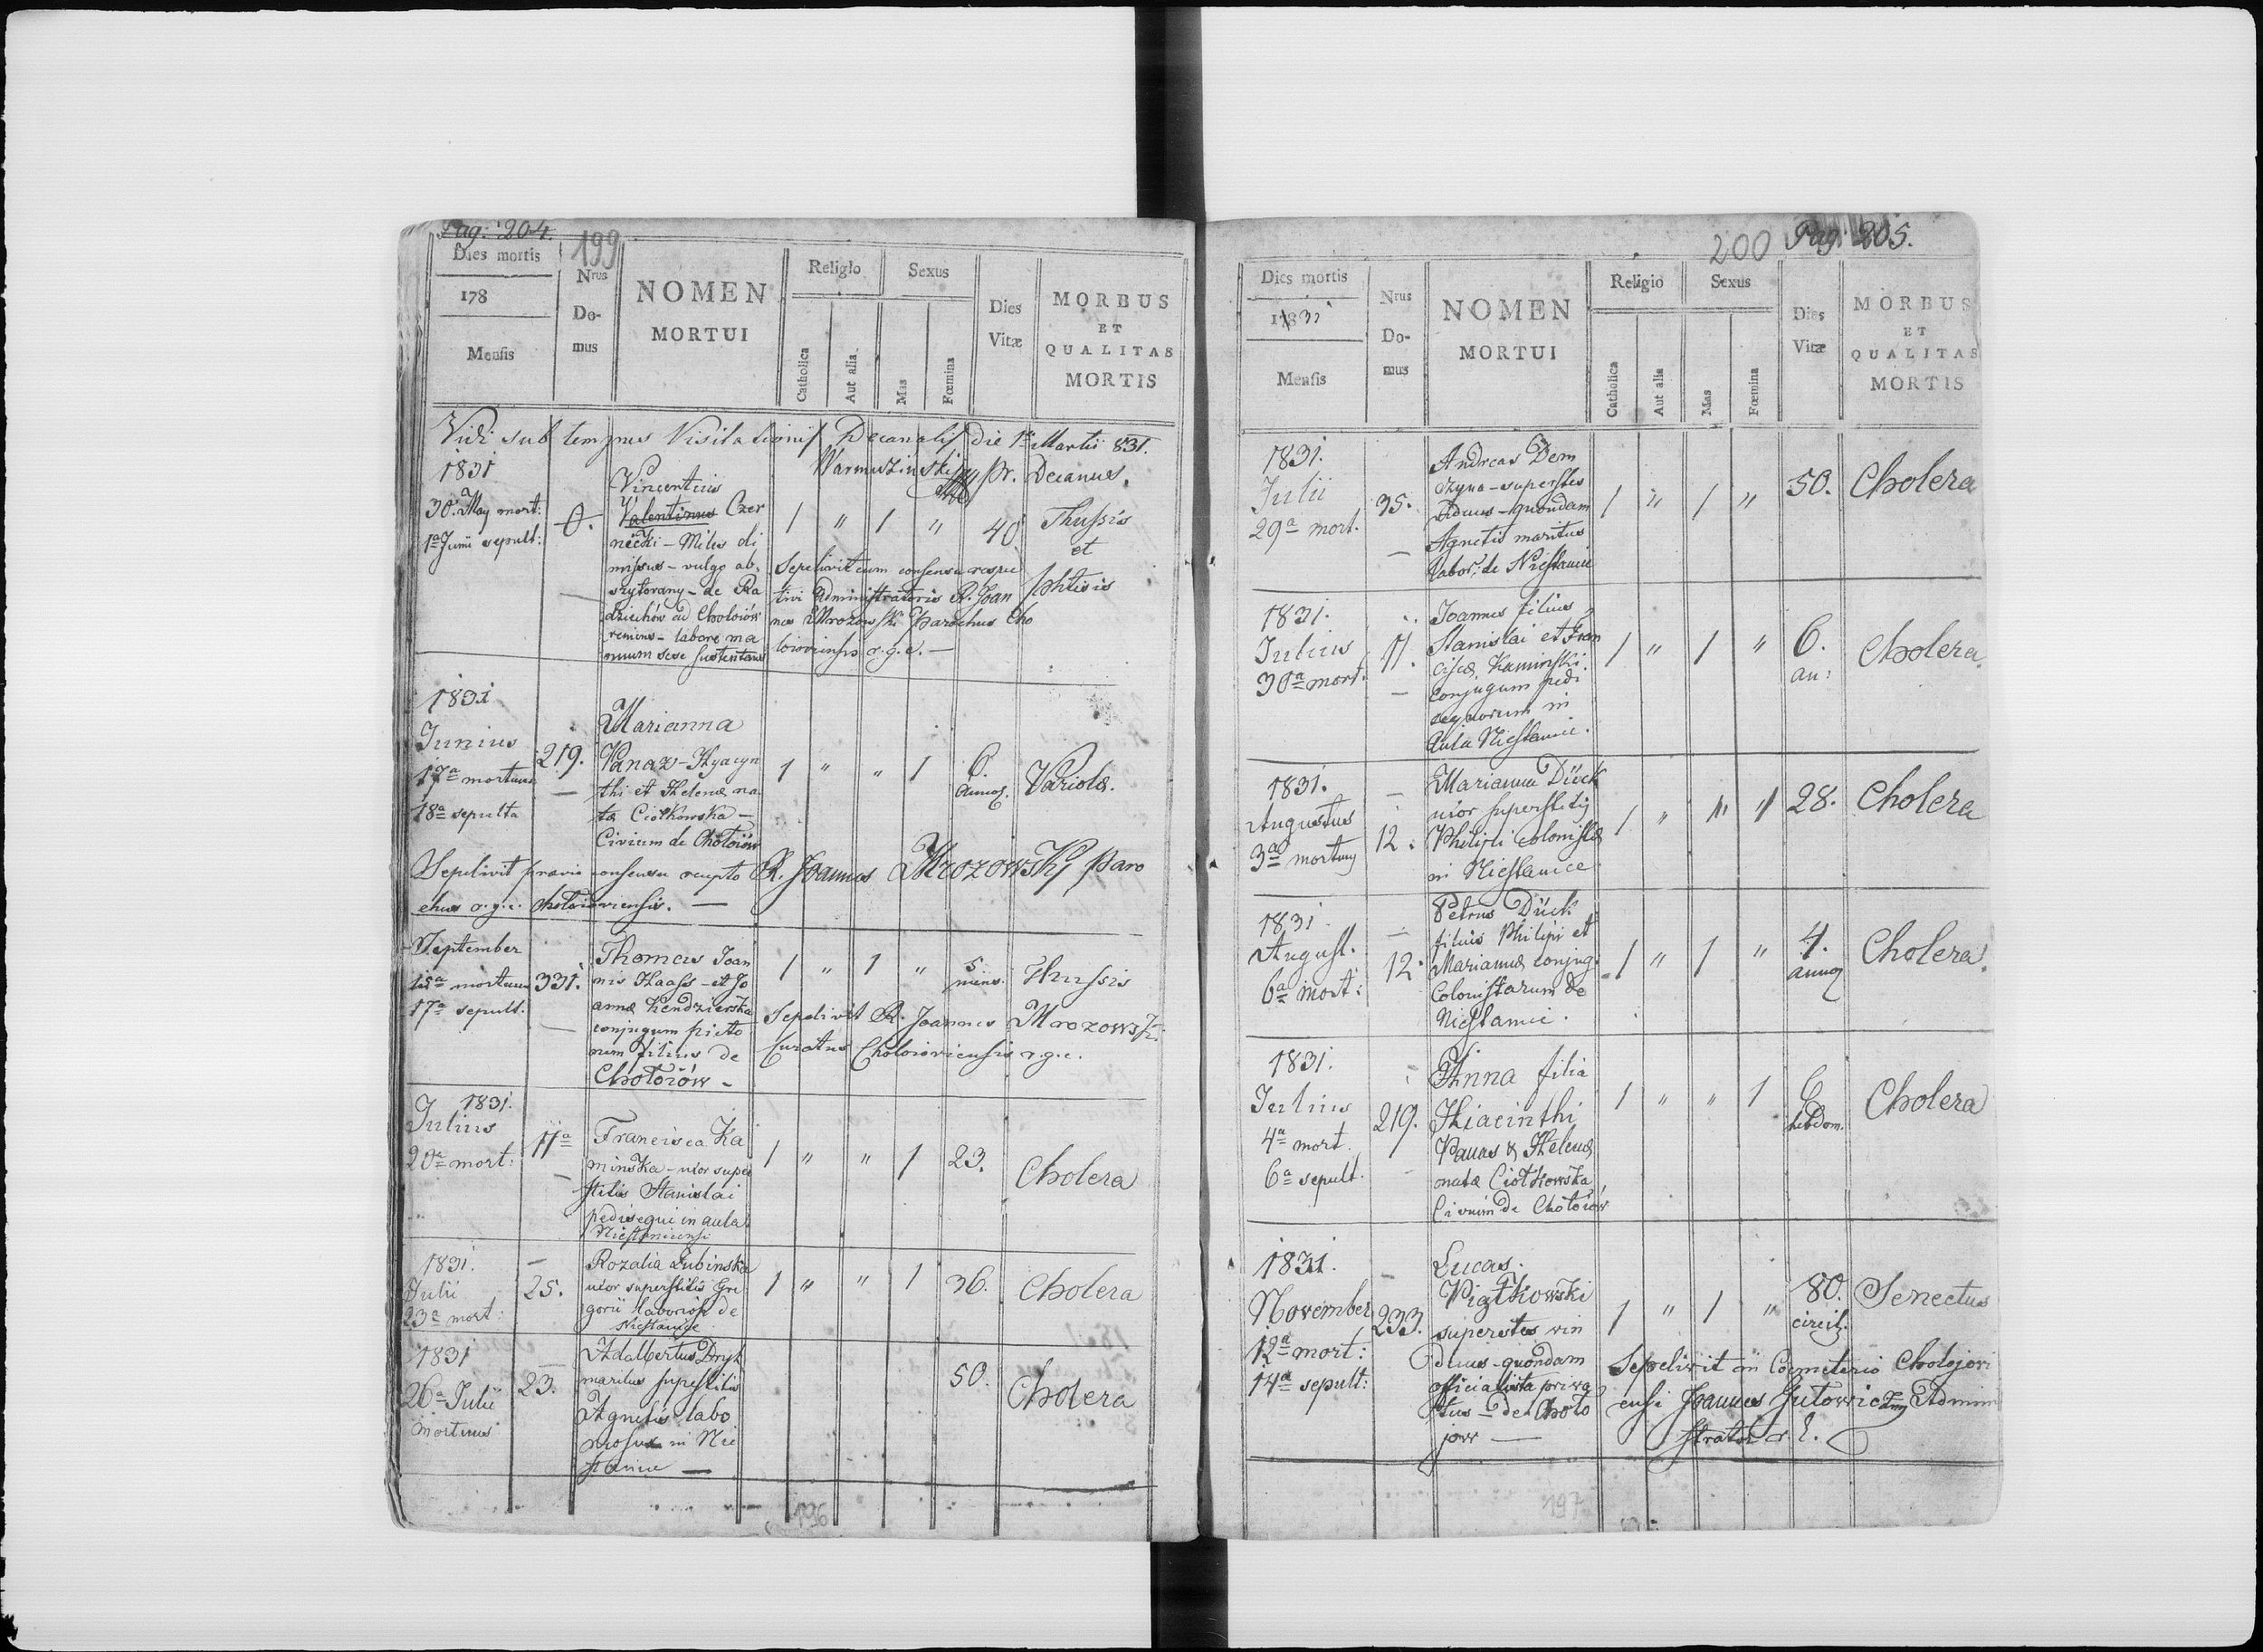 Pag: 204.
199
Dies mortis
178
Mensis
Nrus
Do-
mus
NOMEN
MORTUI
Religio
Catholica
Aut alia
Sexus
Mas
Fœmina
Dies
Vitæ
MORBUS
ET
QUALITAS
MORTIS
Vidi sub tempus Visitationis Decanalis die 1a Martii 831.
Warmuzinski pr. Decanus.
1831
30a May mort:
1a Junii sepult:
0.
Vincentius
Valentinus Czer
necki - Miles di
missus - vulgo ab,
szytowany - de Ra
dziechów ad Chołoiów
veniens - labore ma
nuum sese sustentans
1 " 1 "
40
Thussis
et
phtisis
Sepelivit cum consensu respec
tivi Administratoris R. Joan
nes Mrozowski Parochus Cho
loioviensis r. g. c. —
1831
Junius
17a mortua
18a sepulta
219.
Marianna
Panaz - Hyacyn
thi et Helenæ na
ta Ciołkowska —
Civium de Chołoiów
1 " " 1
6.
annos.
Variolæ.
Sepelivit prævio consensu recepto R. Joannes Mrozowski Paro
chus r. g. c. Choloioviensis. —
September
15a mortuus
17a sepult.
331.
Thomas Joan
nis Haass - et Jo
anna Kendzierska
conjugum picto
rum filius de
Chołoiów -
1 " 1 "
5
mens.
Thussis
Sepelivit R. Joannes Mrozowski
Curatus Choloioviensis r. g. c.
1831.
Julius
20a mort:
11a
Francisca Ka
minska - uxor super
stitis Stanislai
pedisequi in aula
Niestanicensi
1 " " 1
23.
Cholera
1831.
Julii
23a mort:
25.
Rozalia Lubinska
uxor superstitis Gre
gorii laboriosi de
Niestanice
1 " " 1
36.
Cholera
1831
26a Julii
mortuus
23.
Adalbertus Dryk
maritus superstitis
Agnetis labo
riosus in Nie
stanice —
50.
Cholera
196
200
Pag: 205.
Dies mortis
1831
Mensis
Nrus
Do-
mus
NOMEN
MORTUI
Religio
Catholica
Aut alia
Sexus
Mas
Fœmina
Dies
Vitæ
MORBUS
ET
QUALITAS
MORTIS
1831.
Julii
29a mort.
35.
Andreas Dem
czyna - superstes
viduus - quondam
Agnetis maritus
labor: de Niestanice
1 " 1 "
50.
Cholera
1831.
Julius
30a mort:
11.
Joannes filius
Stanislai et Fran
ciscæ Kaminski
conjugum pedi
sequorum in
Aula Niestanice.
1 " 1 "
6.
an:
Cholera
1831.
Augustus
3a mortua
12.
Marianna Dück
uxor superstitis
Philipi Colonistæ
in Niestanice
1 " " 1
28.
Cholera
1831
August.
6a mort:
12.
Petrus Dück
filius Philipi et
Mariannæ conjug.
Colonistarum de
Niestanice.
1 " 1 "
4.
annos
Cholera.
1831.
Julius
4a mort.
6a sepult.
219.
Anna filia
Hiacinthi
Panas & Helenæ
natæ Ciołkowska
Civium de Chołoiów
1 " " 1
6
hebdom.
Cholera
1831.
November
12a mort:
14a sepult:
233.
Lucas
Piątkowski
superstes viu
duus - quondam
officialista priva
tus - de Choło
jow —
1 " 1 "
80.
circit.
Senectus
Sepelivit in Coemeterio Cholojovi
ensi Joannes Gutowicz Admini
strator r. l.
197